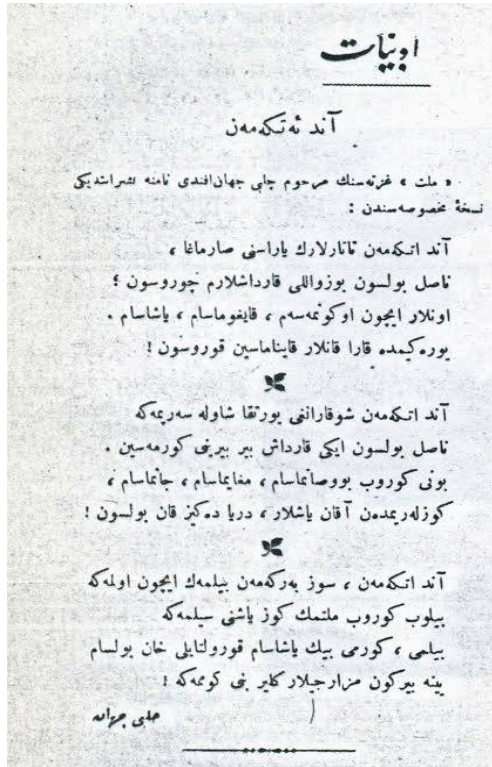 ادبيات
آند ئەتكەمەن
« ملت » غزتەسنك مرحوم چلبی جهان افندی نامنە نشر ایتدیكی
نسخۀ مخصوصەسندن :
آند اتكەمەن تاتارلارك یاراسنی صارماغا ،
ناصل بولسون بوزواللی قارداشلارم چوروسون ؛
اونلار ایچون اوكونمەسەم ، قایغوماسام ، یاشاسام .
یورەكیمدە قارا قانلار قایناماسین قوروسون !
آند اتكەمەن شوقارانغی یورتقا شاولە سەریمەكە
ناصل بولسون ایكی قارداش بیر بیرنی كورمەسین .
بونی كوروب بووصانماسام ، مغایماسام ، جانماسام ،
كوزلەریمدەن آقان یاشلار ، دریا دەكیز قان بولسون !
آند اتكەمەن ، سوز بەركەمەن بیلمەك ایچون اولمەكە
بیلوب كوروب ملتمك كوز یاشنی سیلمەكە
بیلمی ، كورمی بیك یاشاسام قورولتایلی خان بولسام
یینە بیركون مزارجیلار كلیر بنی كوممەكە !
چلبی جهان